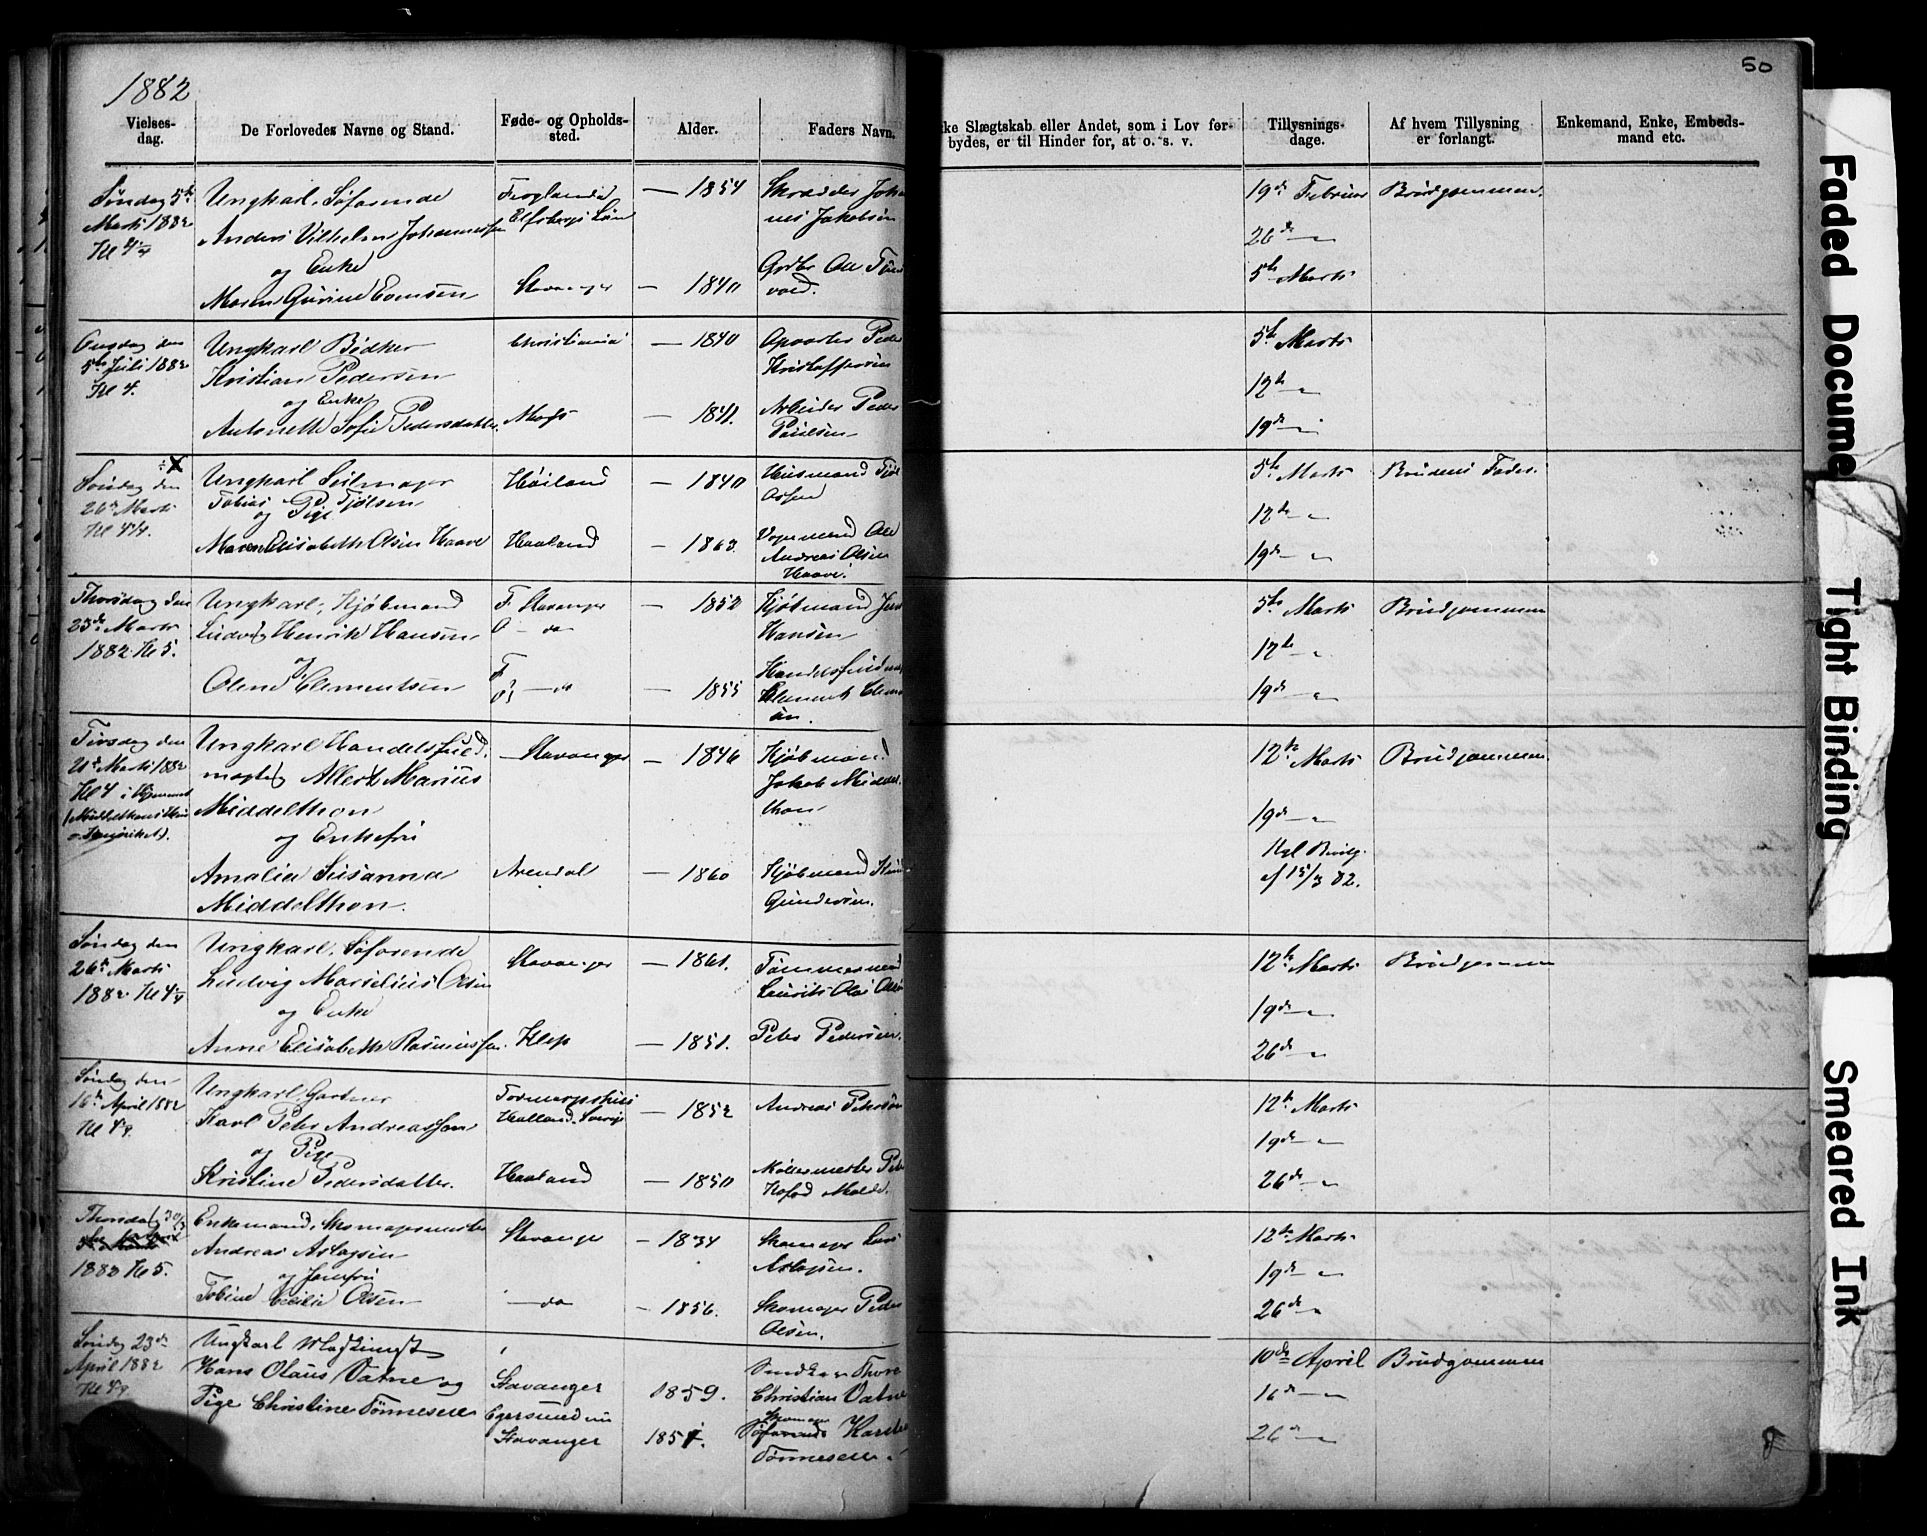 50
1882
Vielses-
dag.
De Forlovedes Navne og Stand.
Føde- og Opholds-
sted.
Alder.
Faders Navn.
ike Slægtskab eller Andet, som i Lov for-
bydes, er til Hinder for, at o. s. v.
Tillysnings-
dage.
Af hvem Tillysning
er forlangt.
Enkemand, Enke, Embeds-
mand etc.
Søndag 5te
Marts 1882
Kl 4 1/4
Ungkarl, Søfarende
Anders Vilhelm Johannessen
og Enke
Maren Gurine Evensen
Elfsborgs Län
Stavanger
— 1854
— 1840
Skrædder Joha
nes Jakobsen
Ole Tøn
vold.
19de Februar
26de —"—
5te Marts
Brudgommen.
Onsdag den
5te Juli 1882
Kl 4.
Ungkarl Bødker
Kristian Pedersen
og Enke
Antonette Sofie Pedersdatter.
Christiania
Moss
— 1840
— 1841.
Opvarter Peder
Kristoffersen
Arbeider Peder
Paulsen
5te Marts
12te —"—
19de —"—
Søndag den
26de Marts
Kl 4 1/4.
Ungkarl Seilmager
Tobias Tjølsen
og Pige
Maren Elisabeth Olsen Haave
Høiland
Haaland
— 1840
— 1863.
Husmand Tjøl
Vognmand Ole
Andreas Olsen
Haave.
5te Marts
12te —"—
19de —"—
Brudens Fader.
Thorsdag den
23de Marts
1882 Kl 5.
Ungkarl, Kjøbmand
Ludvig Henrik Hansen
og
Oline Clementsen
F. Stavanger
O — do
F
O} — do
— 1852
— 1855
Kjøbmand Jens
Hansen
Handelsfuldm
Clement Clem
sen.
5te Marts
12te —"—
19de —"—
Brudgommen
Tirsdag den
21de Marts 1882
Kl 4 i Hjemmet
(Middelthons Hus
Ungkarl Handelsfuld
mægtig Allert Marius
Middelthon
og Enkefru
Amalia Susanna
Middelthon.
Stavanger
Arendal
— 1846
— 1860
Kjøbmand
Jakob Middel
thon
Kjøbmand
Gundersen.
12te Marts
19de —"—
Kgl Bevilg.
af 15/3 82.
Brudgommen.
Søndag den
26de Marts
1882 Kl 4 1/4
Ungkarl, Søfarende
Ludvig Marselius Olsen
og Enke
Anne Elisabeth Rasmussen.
Stavanger
Klep
— 1861.
— 1851.
Tømmermand
Laurits Olai Olsen
Peder Pedersen.
12te Marts
19de —"—
26de —"—
Brudgommen
Søndag den
16de April 1882
Kl 4
Ungkarl, Gartner
Karl Peter Andreasson
og Pige
Kristine Pedersdatter.
Halland, Sverige
Haaland
— 1852
— 1850
Andreas Peterson
Møllermester Pet
Kofod Molde.
12te Marts
19de —"—
26de —"—
Thorsdag 30/3
1882 Kl 5.
Enkemand, Skomagermester
Andreas Aslagsen
og Jomfru
Tobine Cecilie Olsen
Stavanger
— do
— 1834
— 1856.
Skomager Lars
Aslagsen.
Skomager Peder
Olsen.
12te Marts
19de —"—
26de —"—
Søndag 23de
April 1882
Kl 4
Ungkarl Maskinist
Hans Olaus Vatne og
Pige Christine Tønnesen
Stavanger
Egersund nu
Stavanger
1859.
1851.
Snedker Thore
Christian Vatne
Skomager
Søfarende Karsten
Tønnesen.
10de April
16de —"—
26de —"—
Brudgommen
Faded Document
Tight Binding
Smeared Ink